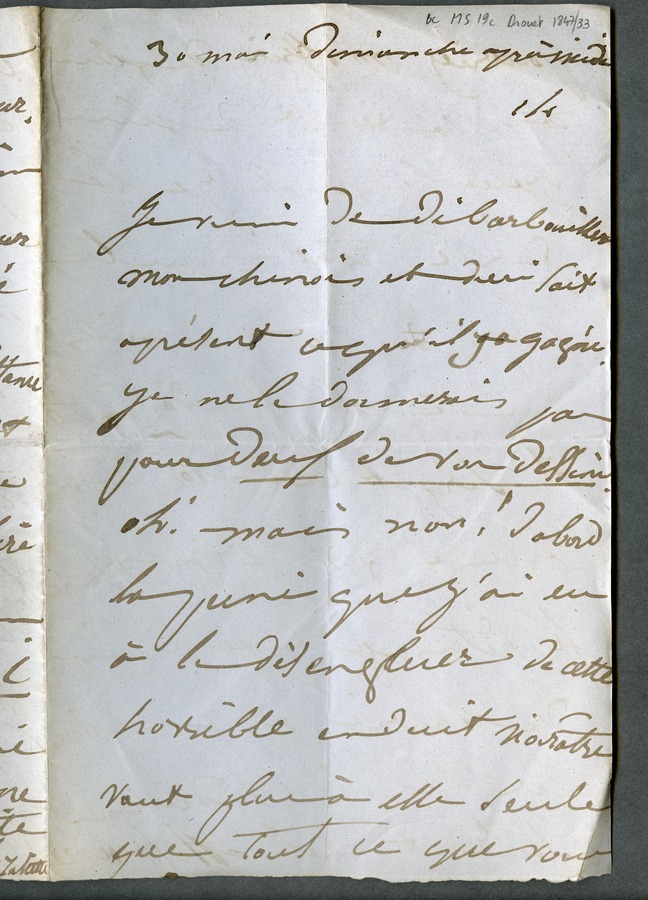 bc MS 19c Drouet 1847/33
30 mai Dimanche après midi
1h
Je viens de débarbouiller
mon chinois et dieu sait
àprésent ce qu'il y a gagné.
Je ne le donnerais pas
pour deux de vos dessins.
oh! mais non! D'abord
la peine que j'ai eu
à le désengluer de cette
horrible enduit noirâtre
vaut plus à elle seule
que tout ce que vous